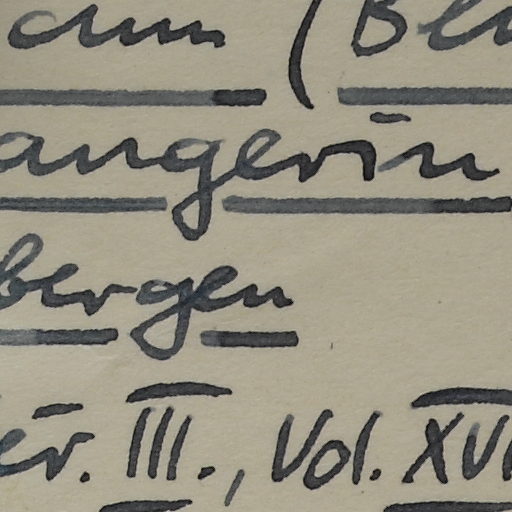 cum (Be
angerin
bergen
ér. III., Vol. XVI